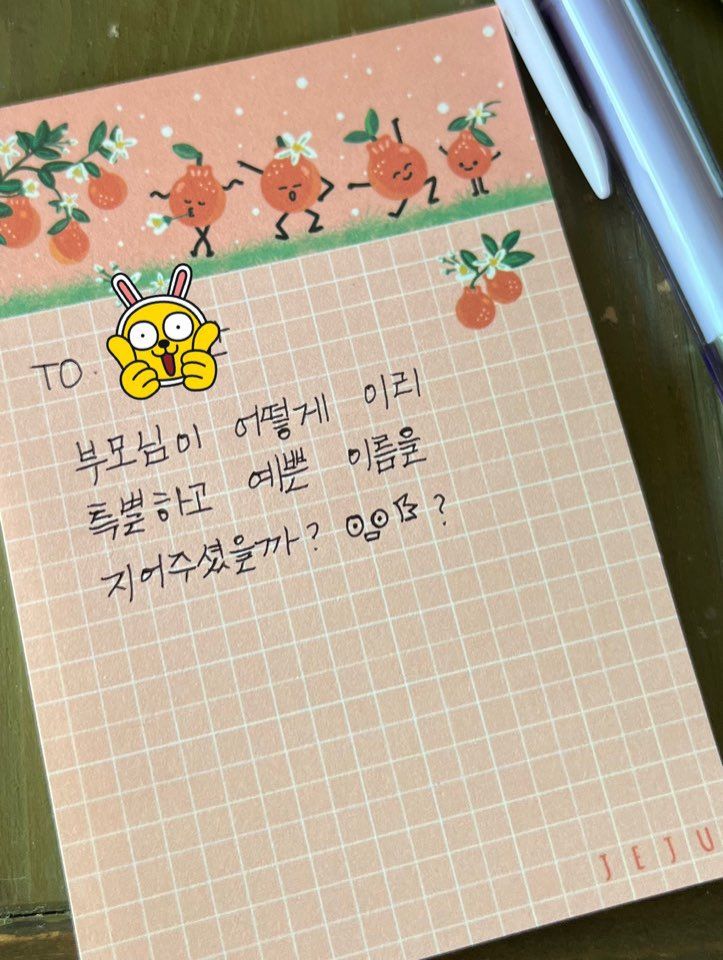 TO.
부모님이 어떻게 이리
특별하고 예쁜 이름을
지어주셨을까? ?
JEJU